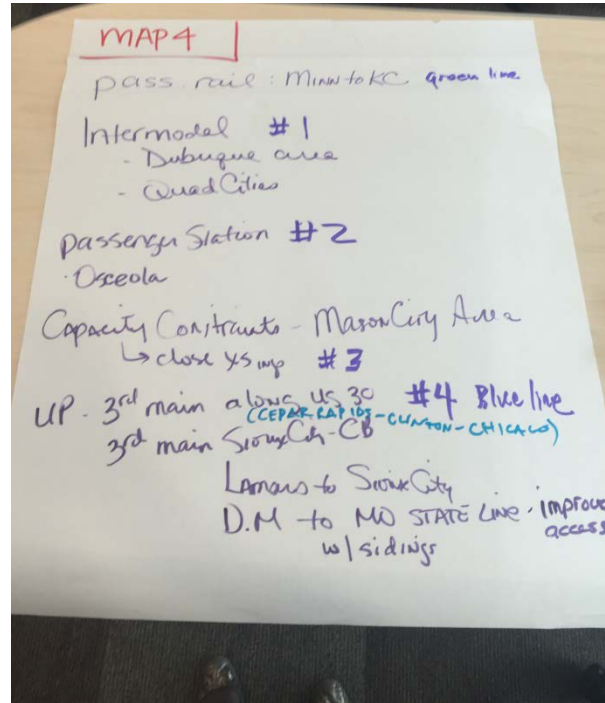 MAP 4
pass. rail: MINN to KC green line
Intermodel #1
- Dubuque area
- Quad Cities
passenger Station #2
· Osceola
Capacity Constraints - Mason City Area
↳ close xsing #3
UP - 3rd main along US 30 #4 Blue line
(CEDAR RAPIDS - CLINTON - CHICAGO)
3rd main Sioux City - CB
Lamars to Sioux City
D.M to MO STATE LINE - improve
access
w/ sidings